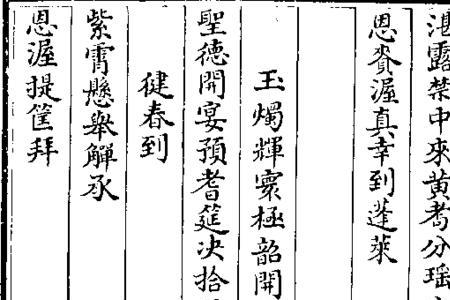 湛露禁中來黃耇分瑤
恩賚渥真幸到蓬萊
玉燭輝寰極韶開
聖德開宴預耆筵决拾
健春到
紫霄懸舉觶承
恩渥提筐拜